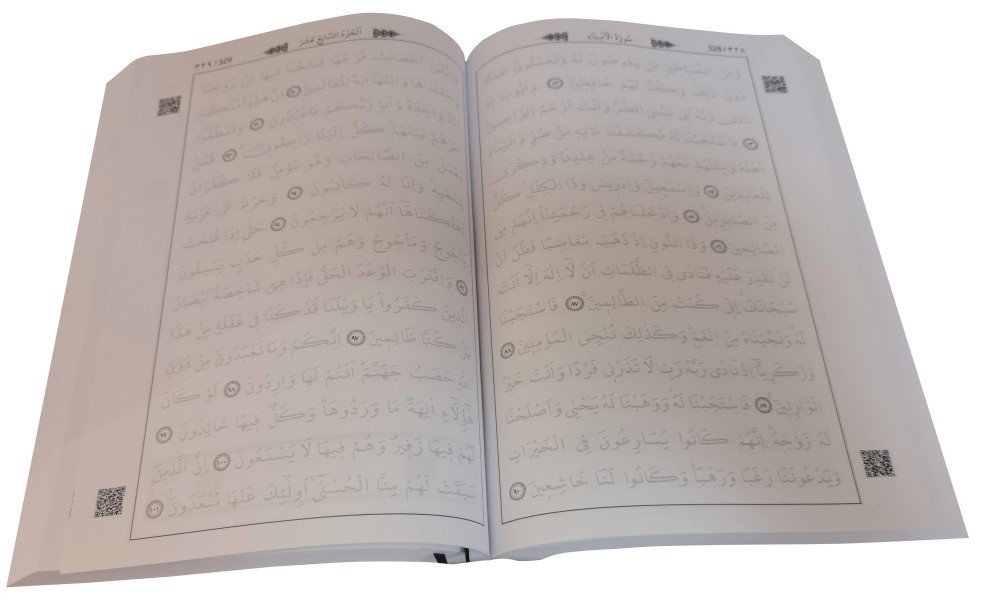 سُورَةُ الْاَنْبِيَاءِ 328 / ٣٢٨
وَمِنَ الشَّيَاطِينِ مَنْ يَغُوصُونَ لَهُ وَيَعْمَلُونَ عَمَلًا
دُونَ ذٰلِكَ وَكُنَّا لَهُمْ حَافِظِينَ ٨٢ وَاَيُّوبَ اِذْ
نَادٰى رَبَّهُ اَنِّى مَسَّنِىَ الضُّرُّ وَاَنْتَ اَرْحَمُ الرَّاحِمِينَ
٨٣ فَاسْتَجَبْنَا لَهُ فَكَشَفْنَا مَا بِهِ مِنْ ضُرٍّ وَاٰتَيْنَاهُ
اَهْلَهُ وَمِثْلَهُمْ مَعَهُمْ رَحْمَةً مِنْ عِنْدِنَا وَذِكْرٰى
لِلْعَابِدِينَ ٨٤ وَاِسْمٰعِيلَ وَاِدْرِيسَ وَذَا الْكِفْلِ كُلٌّ
مِنَ الصَّابِرِينَ ٨٥ وَاَدْخَلْنَاهُمْ فِى رَحْمَتِنَا اِنَّهُمْ مِنَ
الصَّالِحِينَ ٨٦ وَذَا النُّونِ اِذْ ذَهَبَ مُغَاضِبًا فَظَنَّ اَنْ
لَنْ نَقْدِرَ عَلَيْهِ فَنَادٰى فِى الظُّلُمَاتِ اَنْ لَٓا اِلٰهَ اِلَّٓا اَنْتَ
سُبْحَانَكَ اِنِّى كُنْتُ مِنَ الظَّالِمِينَ ٨٧ فَاسْتَجَبْنَا
لَهُ وَنَجَّيْنَاهُ مِنَ الْغَمِّ وَكَذٰلِكَ نُنْجِى الْمُؤْمِنِينَ ٨٨
وَزَكَرِيَّٓا اِذْ نَادٰى رَبَّهُ رَبِّ لَا تَذَرْنِى فَرْدًا وَاَنْتَ خَيْرُ
الْوَارِثِينَ ٨٩ فَاسْتَجَبْنَا لَهُ وَوَهَبْنَا لَهُ يَحْيٰى وَاَصْلَحْنَا
لَهُ زَوْجَهُ اِنَّهُمْ كَانُوا يُسَارِعُونَ فِى الْخَيْرَاتِ
وَيَدْعُونَنَا رَغَبًا وَرَهَبًا وَكَانُوا لَنَا خَاشِعِينَ ٩٠
اَلْجُزْءُ السَّابِعُ عَشَرَ 329 / ٣٢٩
وَالَّتِٓى اَحْصَنَتْ فَرْجَهَا فَنَفَخْنَا فِيهَا مِنْ رُوحِنَا
وَجَعَلْنَاهَا وَابْنَهَٓا اٰيَةً لِلْعَالَمِينَ ٩١ اِنَّ هٰذِهِٓ اُمَّتُكُمْ
اُمَّةً وَاحِدَةً وَاَنَا رَبُّكُمْ فَاعْبُدُونِ ٩٢ وَتَقَطَّعُٓوا
اَمْرَهُمْ بَيْنَهُمْ كُلٌّ اِلَيْنَا رَاجِعُونَ ٩٣ فَمَنْ
يَعْمَلْ مِنَ الصَّالِحَاتِ وَهُوَ مُؤْمِنٌ فَلَا كُفْرَانَ
لِسَعْيِهِ وَاِنَّا لَهُ كَاتِبُونَ ٩٤ وَحَرَامٌ عَلٰى قَرْيَةٍ
اَهْلَكْنَاهَٓا اَنَّهُمْ لَا يَرْجِعُونَ ٩٥ حَتّٰٓى اِذَا فُتِحَتْ
يَأْجُوجُ وَمَأْجُوجُ وَهُمْ مِنْ كُلِّ حَدَبٍ يَنْسِلُونَ
٩٦ وَاقْتَرَبَ الْوَعْدُ الْحَقُّ فَاِذَا هِىَ شَاخِصَةٌ اَبْصَارُ
الَّذِينَ كَفَرُوا يَا وَيْلَنَا قَدْ كُنَّا فِى غَفْلَةٍ مِنْ هٰذَا
بَلْ كُنَّا ظَالِمِينَ ٩٧ اِنَّكُمْ وَمَا تَعْبُدُونَ مِنْ دُونِ
اللّٰهِ حَصَبُ جَهَنَّمَ اَنْتُمْ لَهَا وَارِدُونَ ٩٨ لَوْ كَانَ
هٰٓؤُلَٓاءِ اٰلِهَةً مَا وَرَدُوهَا وَكُلٌّ فِيهَا خَالِدُونَ ٩٩
لَهُمْ فِيهَا زَفِيرٌ وَهُمْ فِيهَا لَا يَسْمَعُونَ ١٠٠ اِنَّ الَّذِينَ
سَبَقَتْ لَهُمْ مِنَّا الْحُسْنٰٓى اُو۬لٰٓئِكَ عَنْهَا مُبْعَدُونَ ١٠١